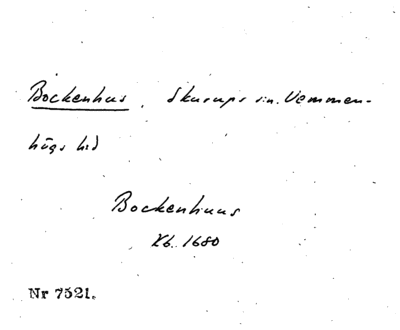 Bockenhus, Skurups sn. Vemmen-
högs hd
Bockenhuus
Kb. 1680
Nr 7521.